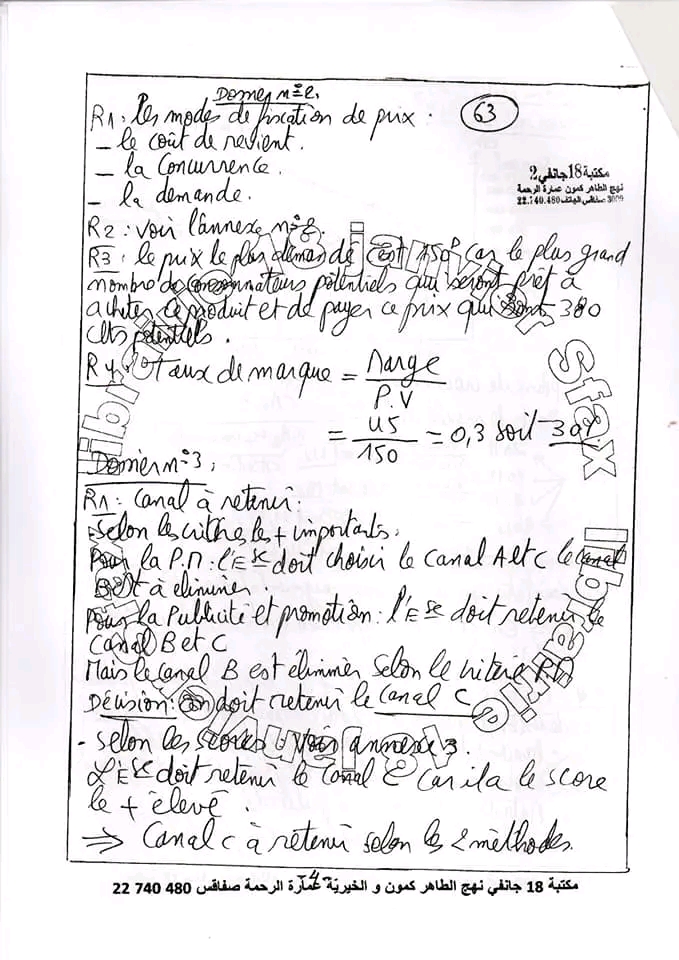 Dossier n° 2.
63
R1 : Les modes de fixation de prix :
– le coût de revient.
– la Concurrence.
– la demande.
مكتبة 18 جانفي 2
نهج الطاهر كمون عمارة الرحمة
3009 صفاقس الهاتف 22.740.480
R2 : voir l'annexe n° 2.
R3 : le prix le plus demandé est 150D car le plus grand
nombre de consommateurs potentiels qui seront prêt à
acheter ce produit et de payer ce prix qui sont 380
clts potentiels.
R4 : Taux de marque = Marge / P.V
= 45 / 150 = 0,3 soit 30%
Dossier n° 3.
R1 : Canal à retenir :
- Selon les critères les + importants.
Pour la P.M : l'Ese doit choisir le canal A et C le canal
B est à eliminer
Pour la Publicité et promotion : l'Ese doit retenir le
canal B et C
Mais le canal B est éliminer selon le critère P.M
Décision : on doit retenir le canal C
- Selon les scores : voir annexe 3.
L'Ese doit retenir le canal C car il a le score
le + élevé.
⇒ Canal C à retenir selon les 2 méthodes.
-4-
مكتبة 18 جانفي نهج الطاهر كمون و الخيرية عمارة الرحمة صفاقس 480 740 22
librairie 18 janvier Sfax
librairie 18 janvier Sfax